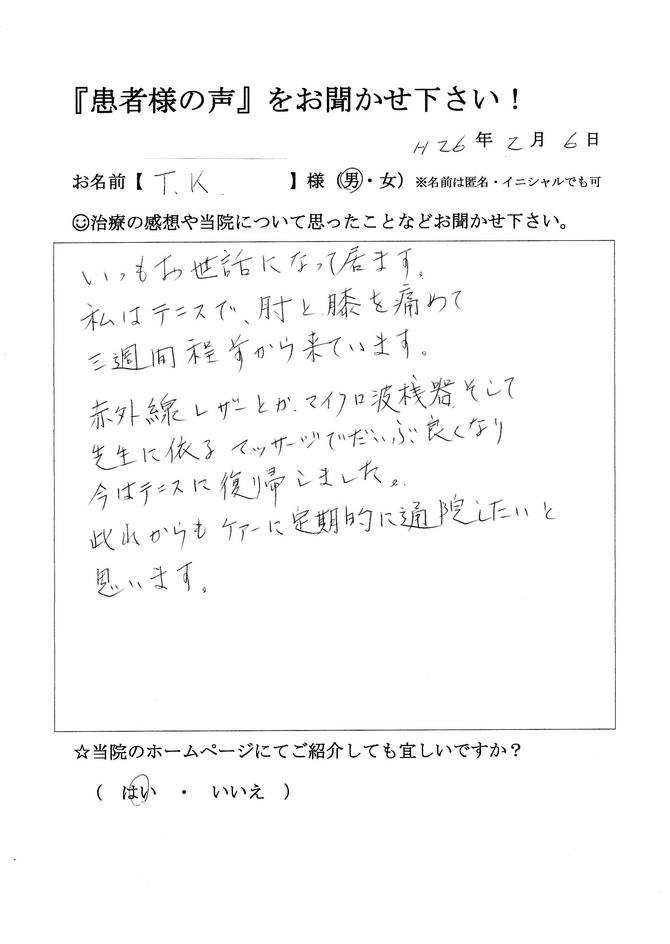 『患者様の声』をお聞かせ下さい！
H26年2月6日
お名前【 T.K. 】様（男・女）※名前は匿名・イニシャルでも可
☺治療の感想や当院について思ったことなどお聞かせ下さい。
いつもお世話になって居ます。
私はテニスで、肘と膝を痛めて
三週間程前から来ています。
赤外線レザーとか、マイクロ波機器、そして
先生に依るマッサージでだいぶ良くなり
今はテニスに復帰しました。
此れからもケアーに定期的に通院したいと
思います。
☆当院のホームページにてご紹介しても宜しいですか？
（ はい ・ いいえ ）